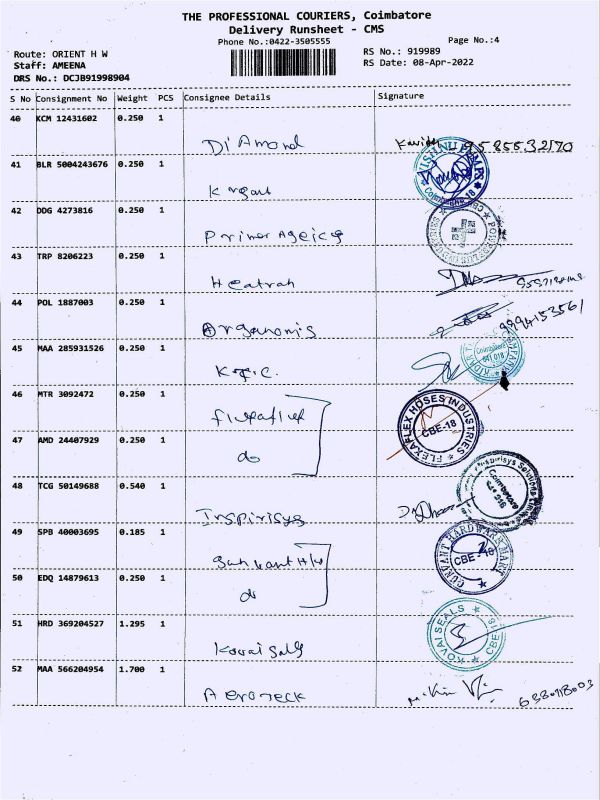 THE PROFESSIONAL COURIERS, Coimbatore
Delivery Runsheet - CMS
Phone No.:0422-3505555
Page No.:4
Route: ORIENT H W
RS No.: 919989
Staff: AMEENA
RS Date: 08-Apr-2022
DRS No.: DCJB91998904
S No Consignment No Weight PCS Consignee Details Signature
40 KCM 12431602 0.250 1
DiAmond
41 BLR 5004243676 0.250 1
42 DDG 4273816 0.250 1
43 TRP 8206223 0.250 1
Heatrah
44 POL 1887003 0.250 1
9994153561
45 MAA 285931526 0.250 1
46 MTR 3092472 0.250 1
FLEXAFLEX HOSES INDUSTRIES
CBE-18
47 AMD 24407929 0.250 1
do
48 TCG 50149688 0.540 1
Inspirisys
Inspirisys Solutions
Coimbatore
49 SPB 40003695 0.185 1
GURVANT HARDWARE MART
CBE-18
50 EDQ 14879613 0.250 1
do
51 HRD 369204527 1.295 1
KOVAI SEALS
CBE-18
52 MAA 566204954 1.700 1